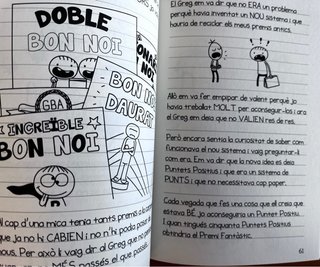 DOBLE
BON NOI
GBA
BON NOI
DAURAT
INCREÏBLE
BON NOI
Al cap d'una mica tenia tants premis a la
que ja no hi CABIEN i no n'hi podia posar
cap més. Per això li vaig dir al Greg que no
MÉS passés el que passés.
El Greg em va dir que no ERA un problema
perquè havia inventat un NOU sistema i que
hauria de reciclar els meus premis antics.
Allò em va fer empipar de valent perquè jo
havia treballat MOLT per aconseguir-los i ara
el Greg em deia que no VALIEN res de res.
Però encara sentia la curiositat de saber com
funcionava el nou sistema i vaig preguntar-li
com era. Em va dir que la nova idea es deia
Puntets Positius i que era un sistema de
PUNTS i que no necessitava cap paper.
Cada vegada que fes una cosa que ell creia que
estava BÉ, jo aconseguiria un Puntet Positiu.
I quan tingués cinquanta Puntets Positius
obtindria el Premi Fantàstic.
61